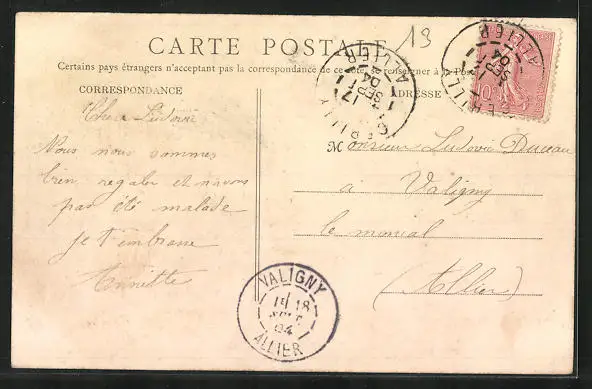 CARTE POSTALE
13
Certains pays étrangers n'acceptant pas la correspondance de ce côté, se renseigner à la Poste
CORRESPONDANCE
ADRESSE
Cher Ludovic
Nous nous sommes
bien regaler et navons
pas été malade
je t'embrasse
Annette
Monsieur Ludovic Duceau
à Valigny
le monial
(Allier)
17
SEPT
04
ALLIER
10
ALLIER
SEPT
04
VALIGNY
18
SEPT
04
ALLIER